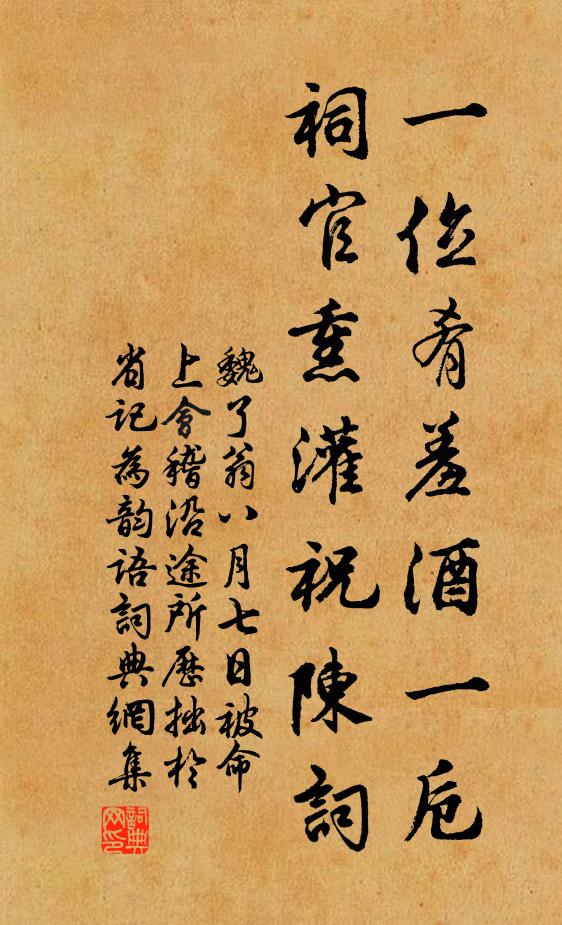 一位肴羞酒一卮
祠官熏灌祝陳詞
魏了翁八月七日被命
上會稽沿途所歷拙於
省記為韵語詞典網集
詞典
网印